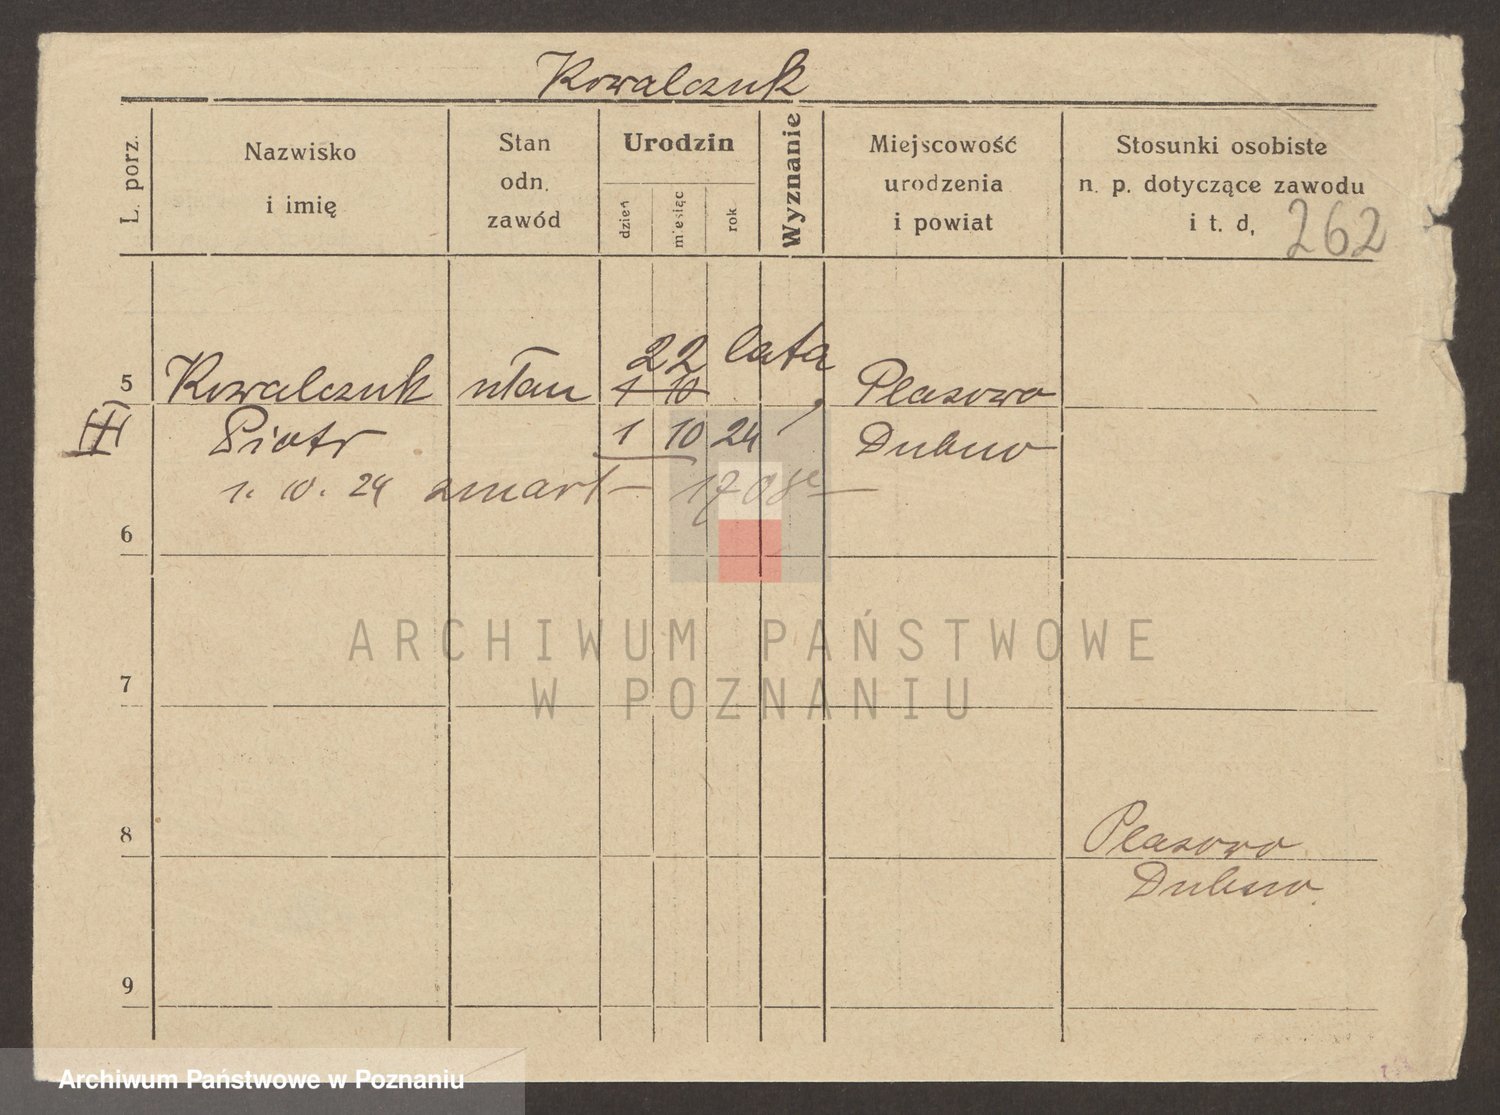 Kowalczuk
L. porz.
Nazwisko
i imię
Stan
odn.
zawód
Urodzin
dzień
miesiąc
rok
Wyznanie
Miejscowość
urodzenia
i powiat
Stosunki osobiste
n. p. dotyczące zawodu
i t. d,
262
22 lata
5 Kowalczuk ułan 1 10 Plasowo
Piotr 1 10 24 Dubno
1. 10. 24 zmarł
6
7
8
Plasowo
Dubno
9
ARCHIWUM PAŃSTWOWE
W POZNANIU
Archiwum Państwowe w Poznaniu